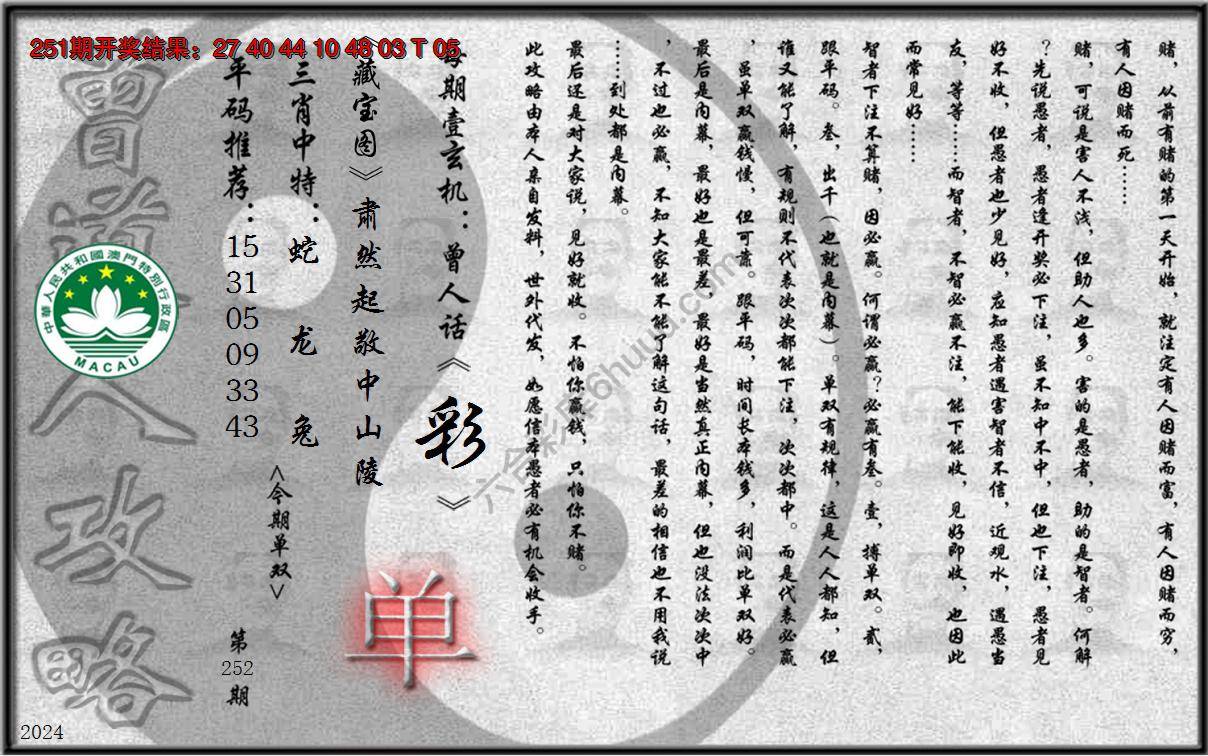 251期开奖结果：27 40 44 10 48 03 T 05
赌，从前有赌的第一天开始，就注定有人因赌而富，有人因赌而穷，
有人因赌而死……
赌，可说是害人不浅，但助人也多。害的是愚者，助的是智者。何解
？先说愚者，愚者逢开奖必下注，虽不知中不中，但也下注，愚者见
好不收，但愚者也少见好，应知愚者遇害智者不信，近观水，遇愚当
友，等等……而智者，不智必赢不注，能下能收，见好即收，也因此
而常见好……
智者下注不算赌，因必赢。何谓必赢？必赢有叁。壹，搏单双。贰，
跟平码。叁，出千（也就是内幕）。单双有规律，这是人人都知，但
谁又能了解，有规则不代表次次都能下注，次次都中。而是代表必赢
，虽单双赢钱慢，但可靠。跟平码，时间长本钱多，利润比单双好。
最后是内幕，最好也是最差，最好是当然真正内幕，但也没法次次中
，不过也必赢，不知大家能不能了解这句话，最差的相信也不用我说
……到处都是内幕。
最后还是对大家说，见好就收。不怕你赢钱，只怕你不赌。
此攻略由本人亲自发料，世外代发，如愿信本愚者必有机会收手。
每期壹玄机：曾人话《彩》
《藏宝图》肃然起敬中山陵
单
三肖中特：蛇 龙 兔
<今期单双>
平码推荐：15 31 05 09 33 43
第252期
曾道人攻略
中華人民共和國澳門特別行政區
MACAU
2024